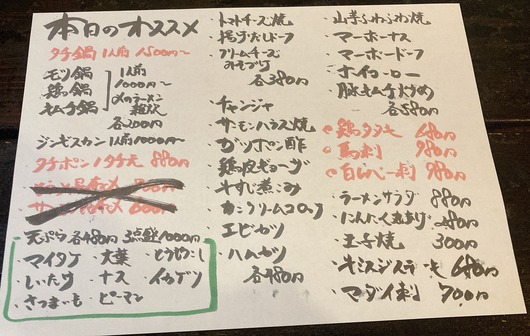 本日のオススメ
タチ鍋 1人前 1,500円〜
モツ鍋
鶏鍋
キムチ鍋
1人前
1,000円〜
〆のラーメン
雑炊
各200円
ジンギスカン 1人前 1,000円〜
タチポン/タチ天 880円
天ぷら 各480円 3点盛 1,000円
マイタケ ・大葉 ・とうきび
しいたけ ・ナス ・イカゲソ
さつまいも ・ピーマン
・トマトチーズ焼
・揚げだしドーフ
・クリームチーズ
みそづけ
各380円
・チャンジャ
・サーモンハラス焼
・ガツポン酢
・鶏皮ギョーザ
・牛すじ煮込み
・カニクリームコロッケ
・エビカツ
・ハムカツ
各480円
・山芋ふわふわ焼
・マーボーナス
・マーボードーフ
・ホイコーロー
・豚キムチ炒め
各580円
鶏タタキ 680円
馬刺 980円
白レバー刺 980円
・ラーメンサラダ 880円
・にんにく丸あげ 480円
・玉子焼 300円
・牛ミスジステーキ 680円
・マダイ刺 700円